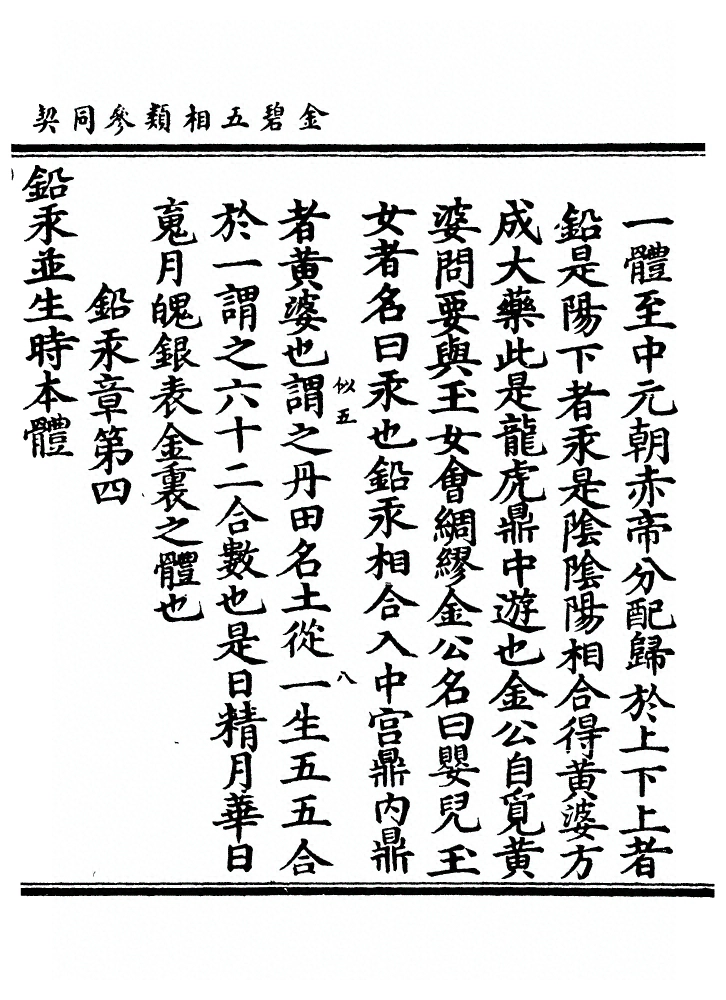 金碧五相類參同契
一體至中元朝赤帝分配歸於上下上者
鉛是陽下者汞是陰陰陽相合得黃婆方
成大藥此是龍虎鼎中遊也金公自覓黃
婆問要與玉女會綢繆金公名曰嬰兒玉
女者名曰汞也鉛汞相合入中宮鼎內鼎
似五
八
者黃婆也謂之丹田名土從一生五五合
於一謂之六十二合數也是日精月華日
䰟月魄銀表金裏之體也
鉛汞章第四
鉛汞並生時本體